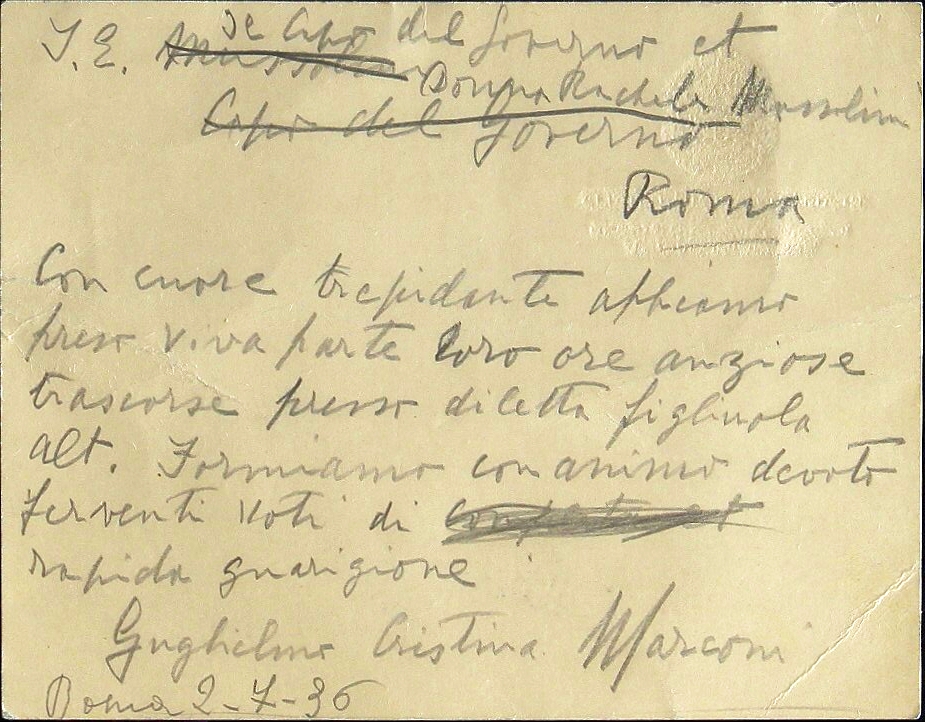 S. E. Mussolini
Il Capo del Governo et
Donna Rachele Mussolini
Capo del Governo
Roma
Con cuore trepidante abbiamo
preso viva parte loro ore anziose
trascorse presso diletta figliuola
alt. Formiamo con animo devoto
ferventi voti di completa et
rapida guarigione
Guglielmo Cristina Marconi
Roma 2-7-36